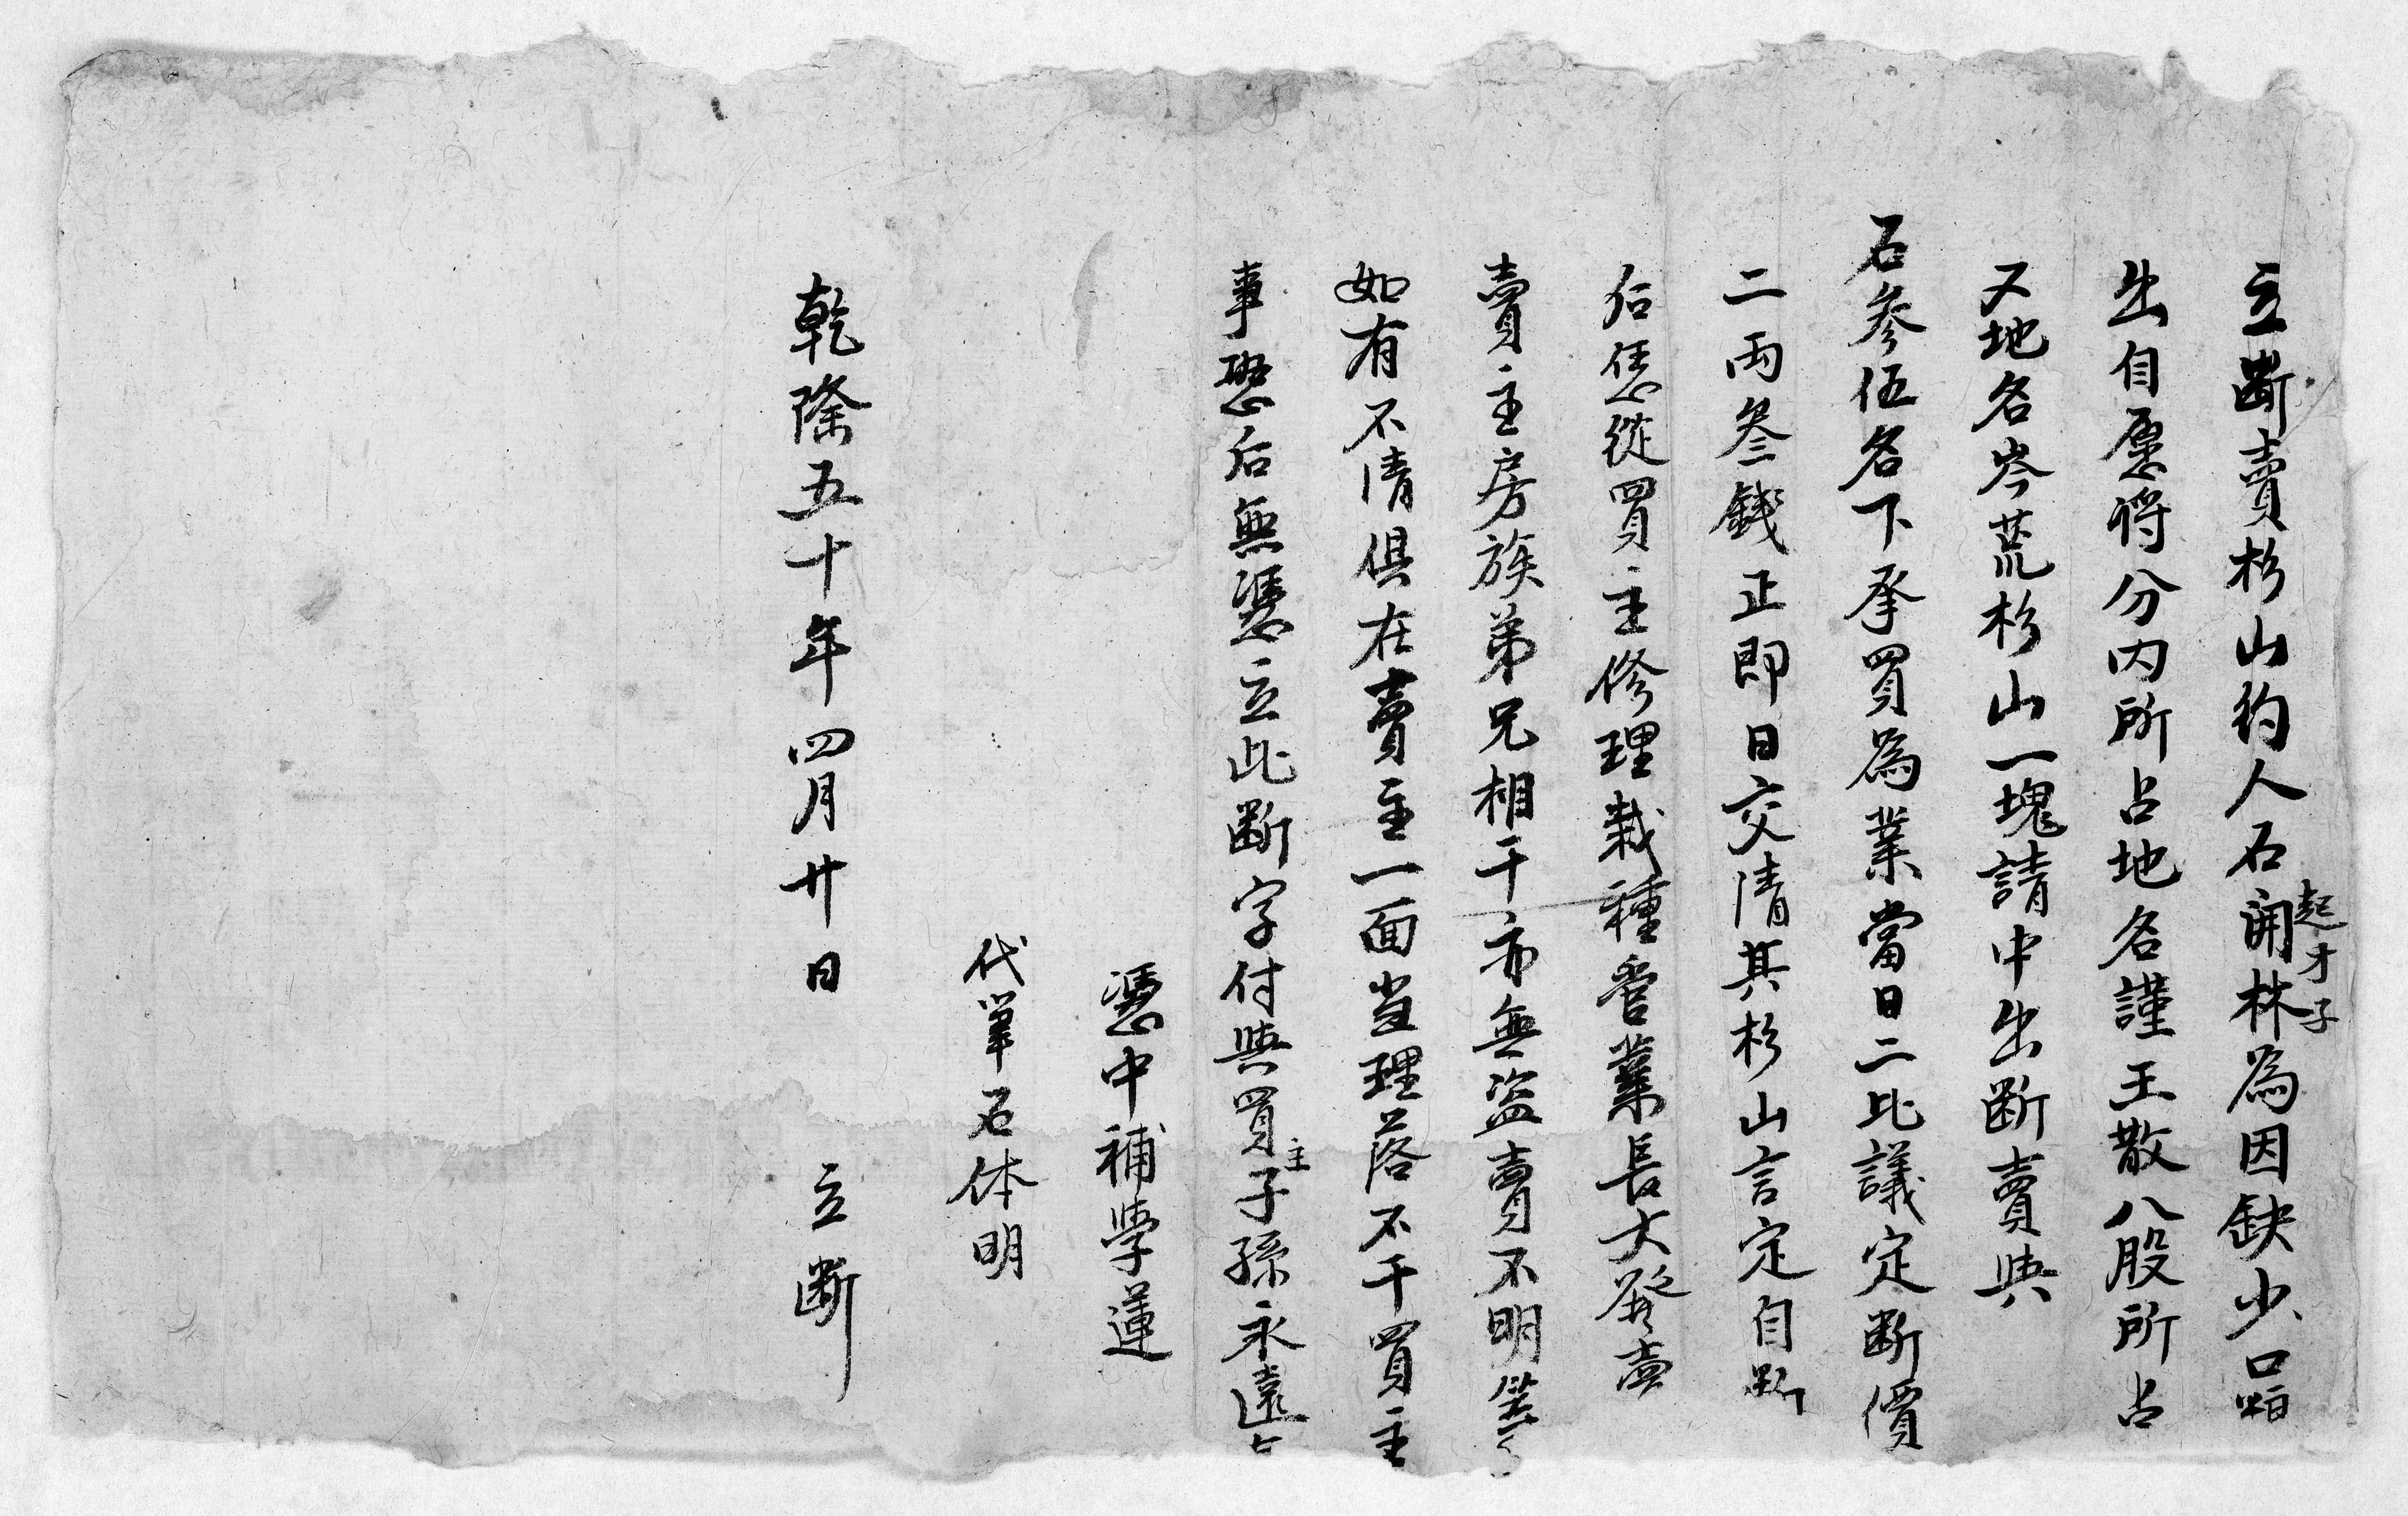 立斷賣杉山約人石開林起才子為因缺少口粮
出自愿将分内所占地名謹王散八股所占
又地名岑荒杉山一塊請中出断賣與
石參伍名下承買為業當日二比議定断價
二両叁錢正即日交清其杉山言定自断
后恁從買主修理栽種管業長大發賣
賣主房族弟兄相干亦無盗賣不明等
如有不清俱在賣主一面当理落不干買主
事恐后無憑立此断字付與買主子孫永遠
憑中補學蓮
代筆石体明
乾隆五十年四月廿日 立断